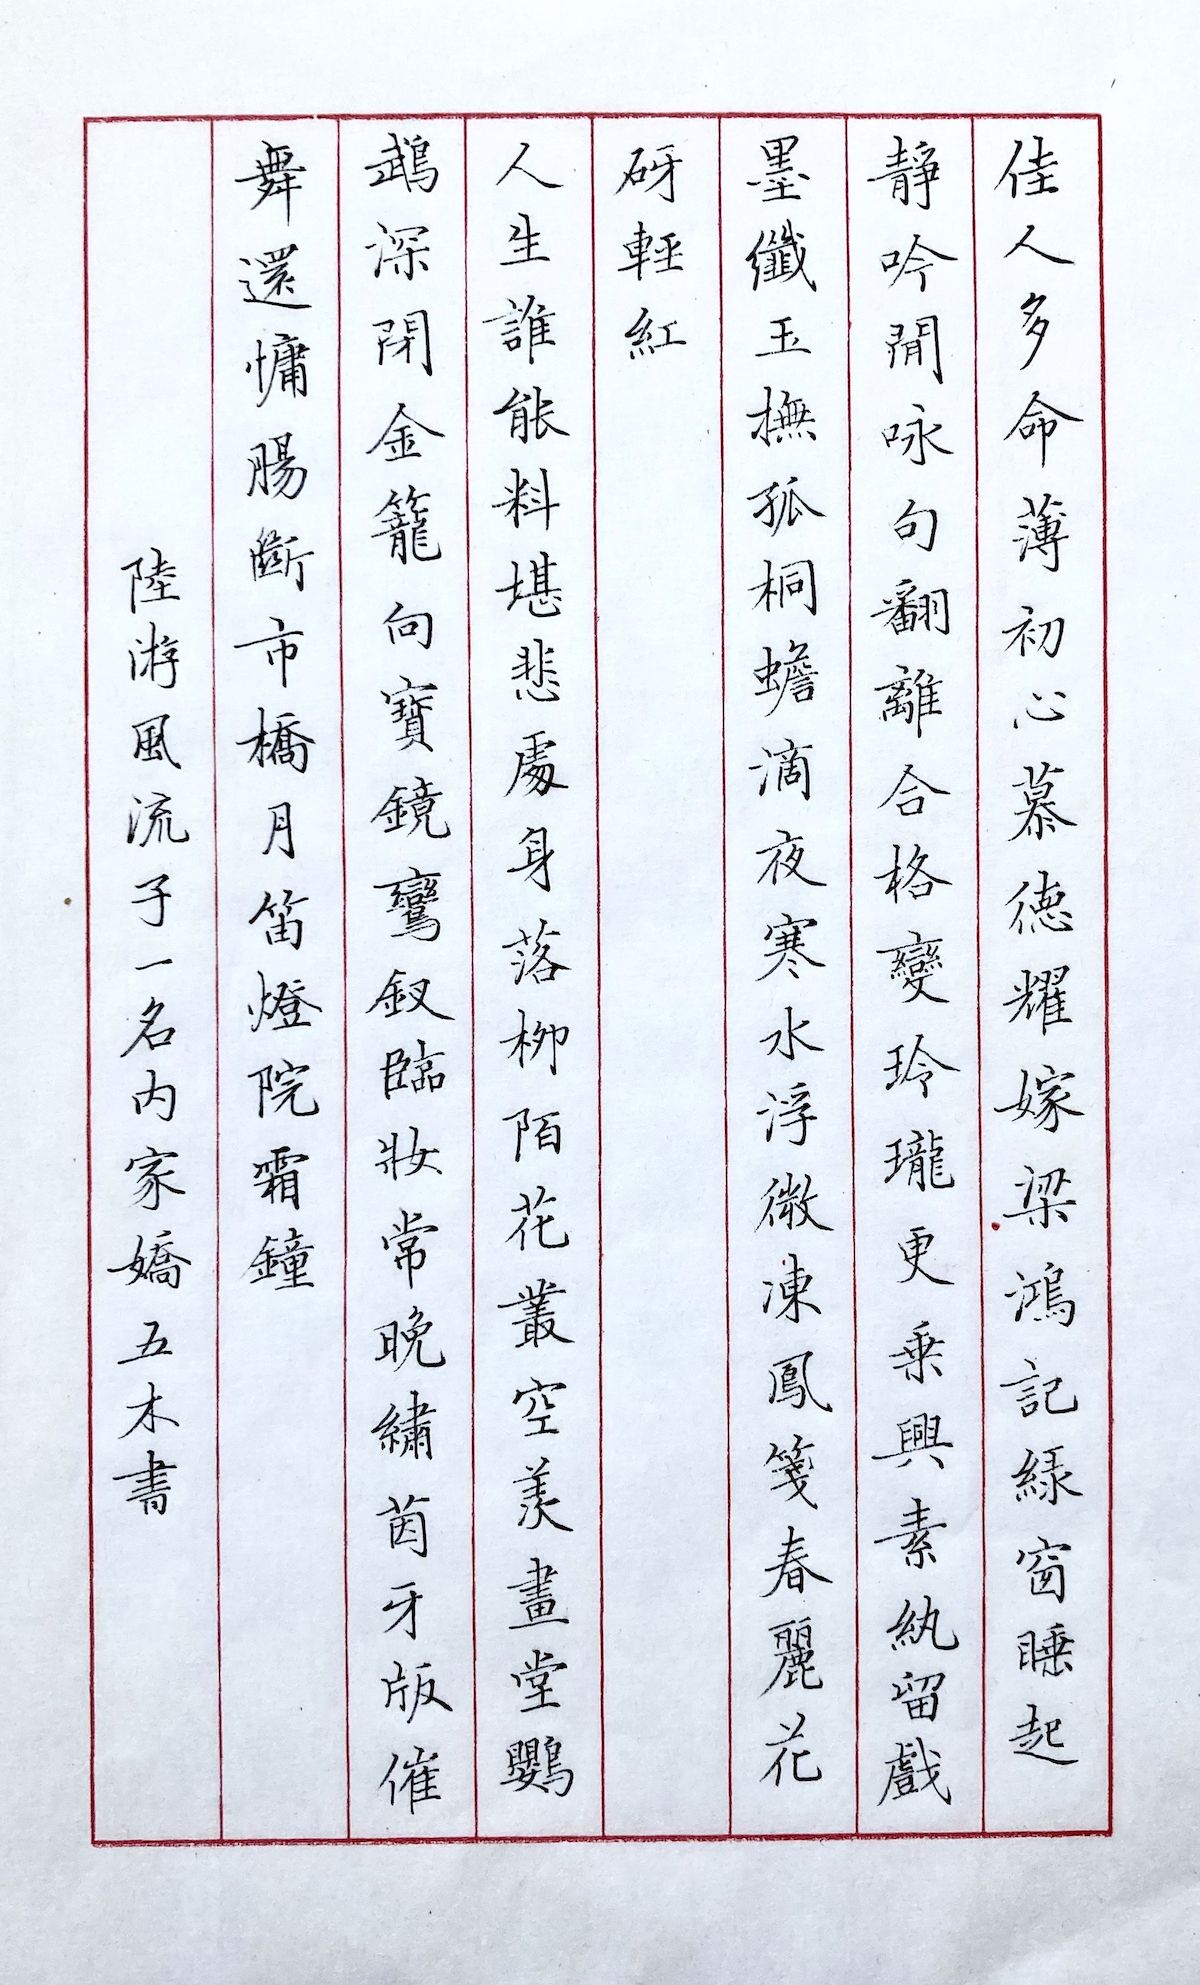 佳人多命薄初心慕德耀嫁梁鴻記綠窗睡起
靜吟閒咏句翻離合格變玲瓏更乗興素紈留戲
墨纖玉撫孤桐蟾滴夜寒水浮微凍鳳箋春麗花
砑輕紅
人生誰能料堪悲處身落栁陌花叢空羡畫堂鸚
鵡深閉金籠向寶鏡鸞釵臨妝常晚繡茵牙版催
舞還慵腸斷市橋月笛燈院霜鐘
陸游風流子一名内家嬌五木書